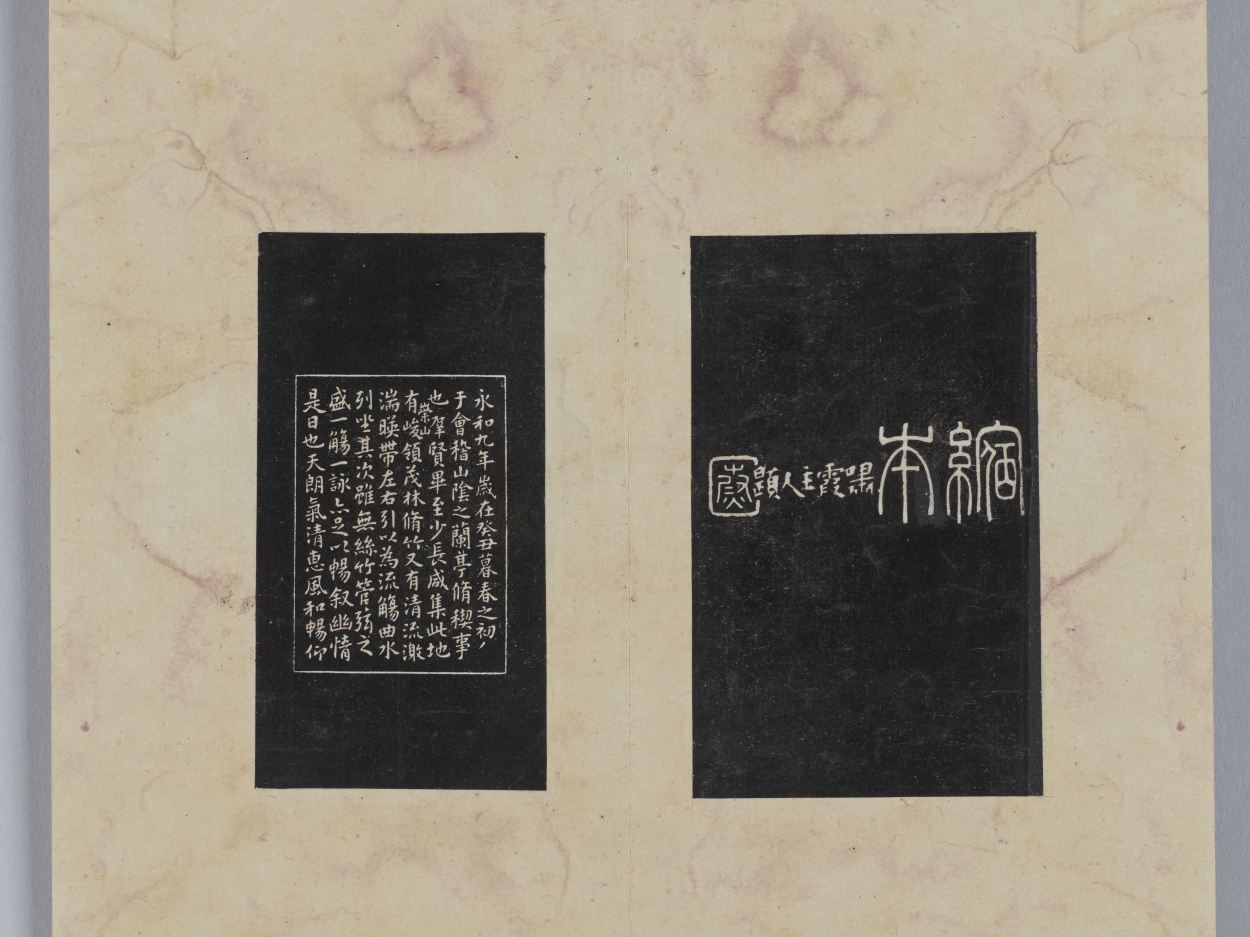 縮本
嘯霞主人題
永和九年歲在癸丑暮春之初
于會稽山陰之蘭亭脩稧事
也羣賢畢至少長咸集此地
有崇山峻領茂林脩竹又有清流激
湍暎帶左右引以為流觴曲水
列坐其次雖無絲竹管弦之
盛一觴一詠亦足以暢叙幽情
是日也天朗氣清惠風和暢仰